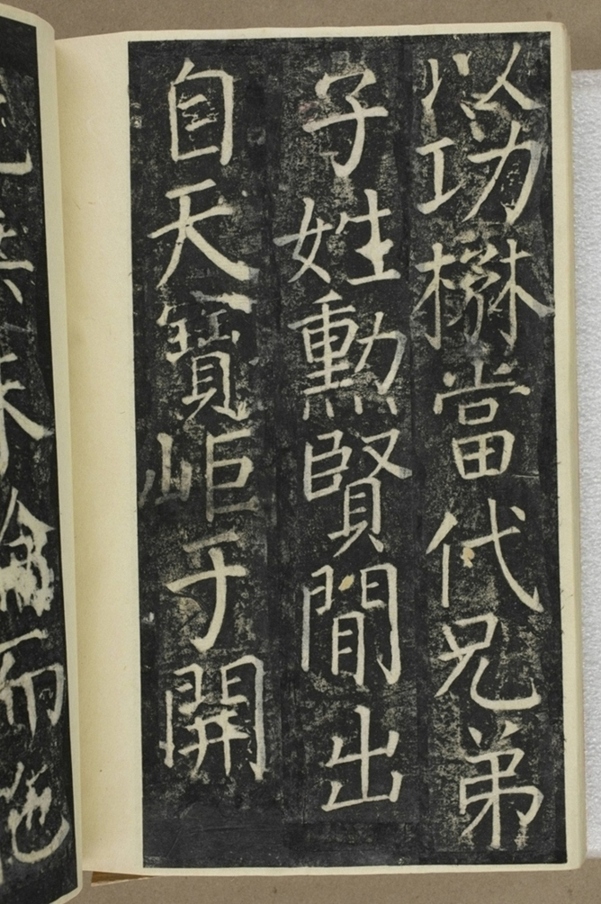 以功楙當代兄弟
子姓勳賢閒出
自天寶岠于開